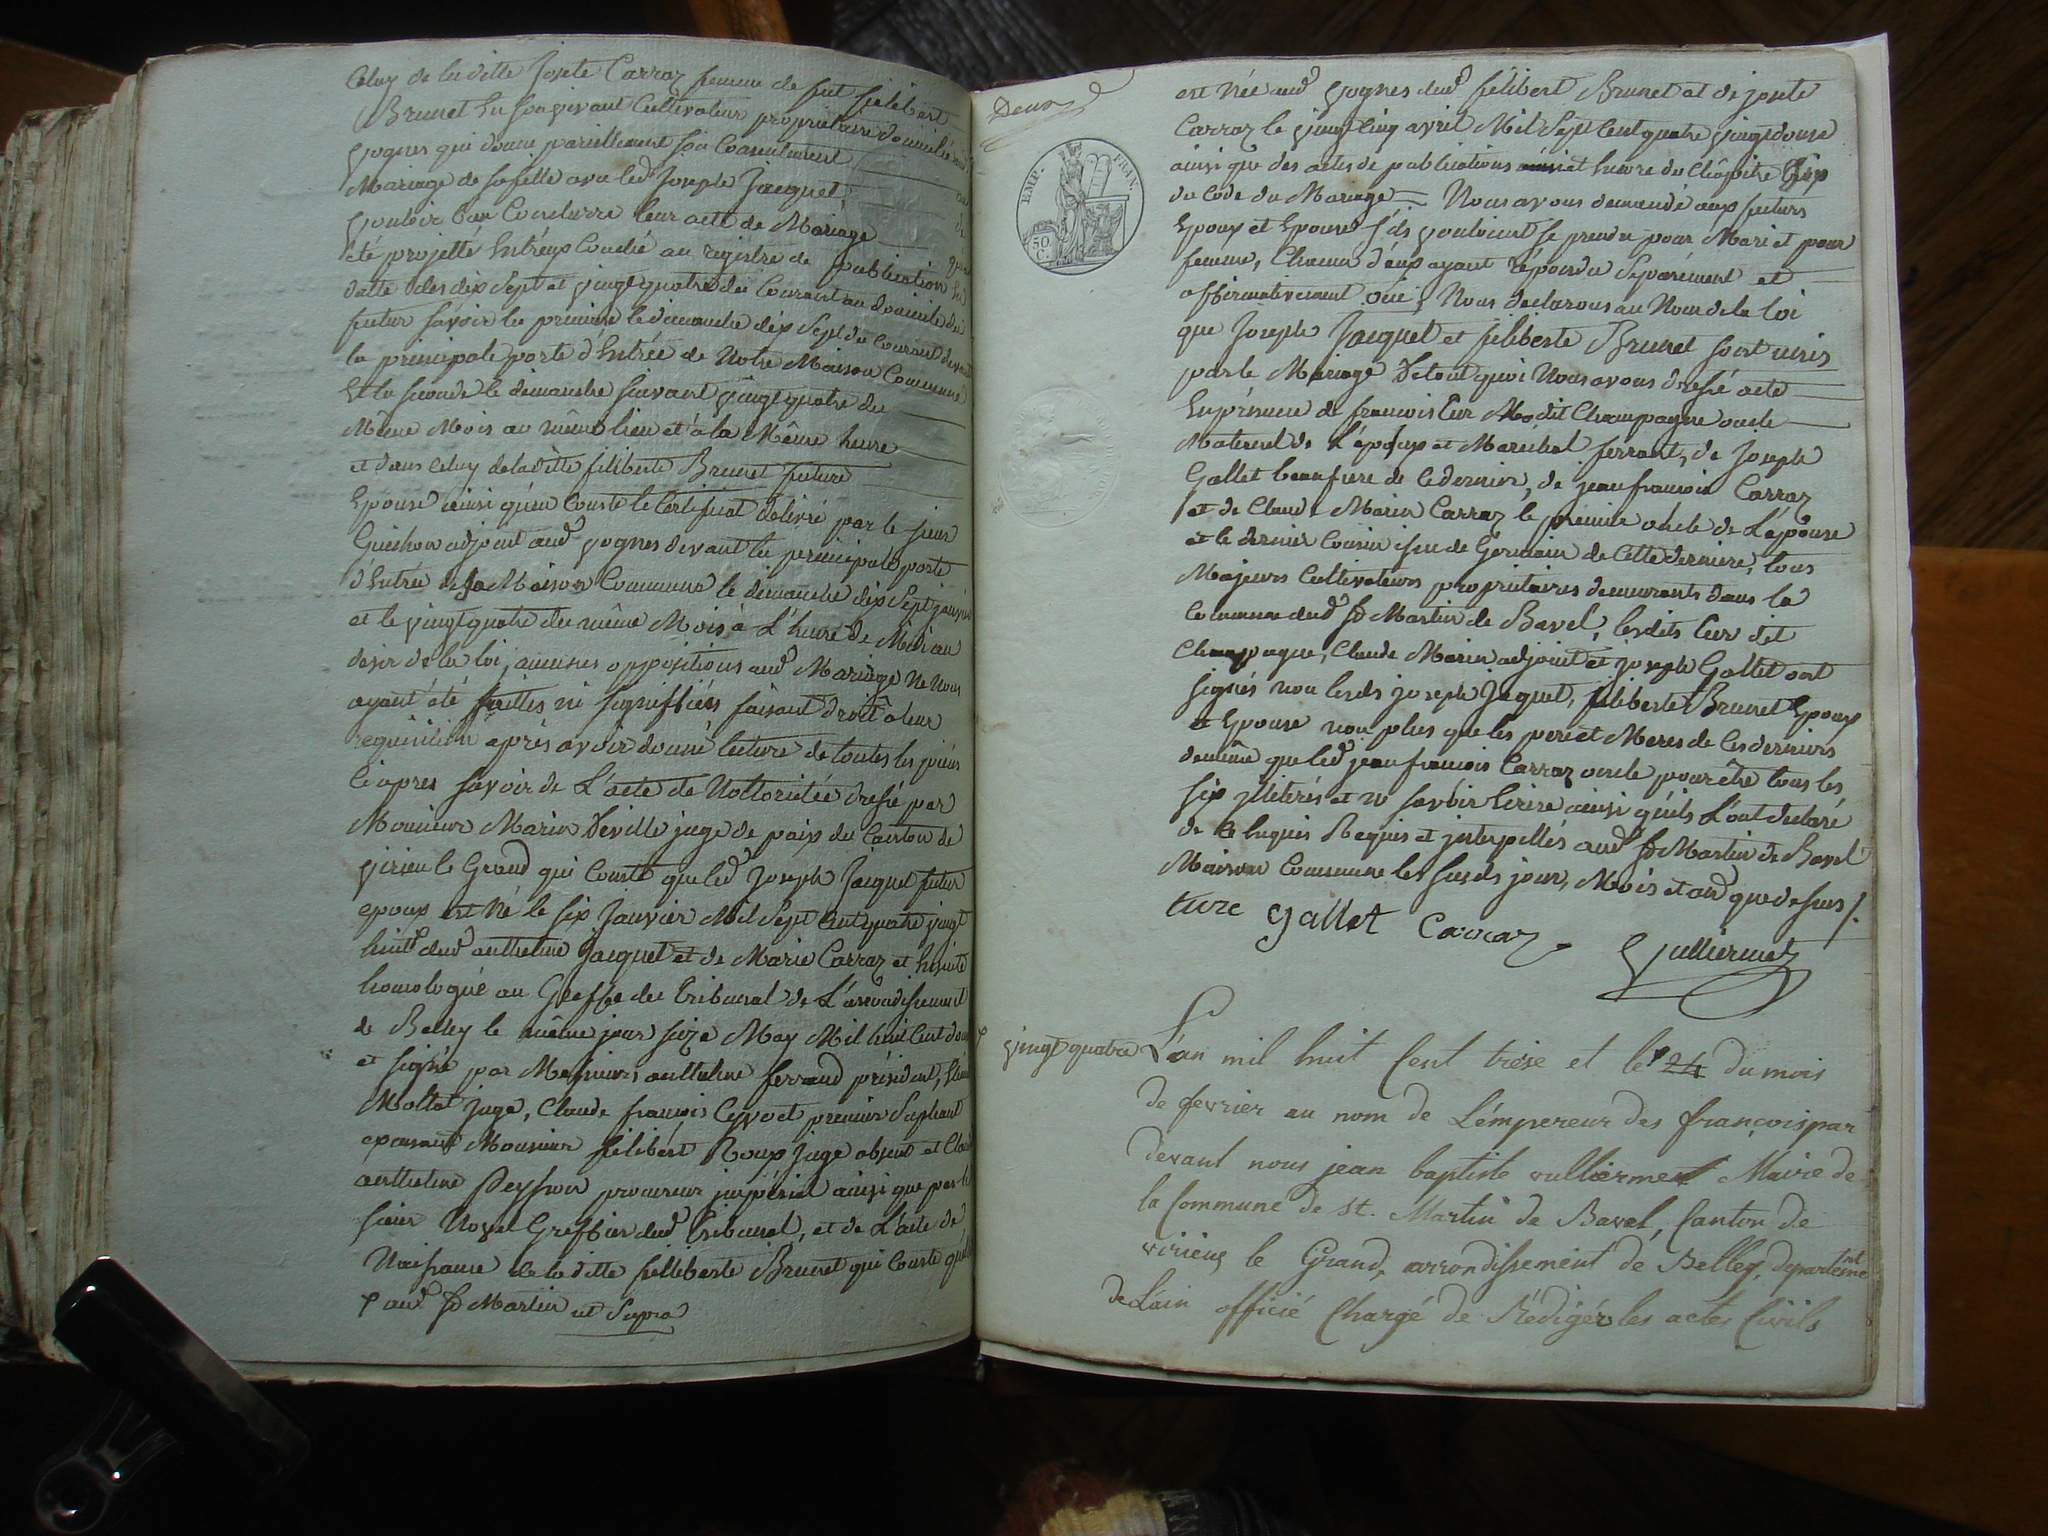 Celuy de la ditte Josete Carraz femme de fut filibert
Brunet En son vivant Cultivateur proprietaire domicilié
Vognes qui donne pareillement son Consentement
Mariage de sa fille avec led Joseph Jacquet
vouloir Conclurre leur acte de Mariage
été projetté Entr'eux Couché au registre de publication
datte des dix Sept et vingt quatre du Courant au domicile du
futur savoir la premiere le dimanche dix Sept du Courant devant
la principale porte d'Entrée de Notre Maison Commune
Et la seconde le dimanche suivant vingt quatre du
Même Mois au même lieu et à la Même heure
et dans Celuy de la ditte filiberte Brunet future
Epouse ainsi qu'en Conste le Certificat délivré par le sieur
adjoint aud vognes devant la principale porte
d'Entrée de sa Maison Commune le dimanche dix Sept janvier
et le vingt quatre du même Mois à L'heure de Midi au
desir de la loi, aucunes oppositions aud Mariage Ne Nous
ayant été faittes ni signiffiées faisant droit à leur
requisition après avoir donné lecture de toutes les pièces
Ciapres savoir de L'acte de Nottoriétée dressé par
Monsieur Marin Deville juge de paix du Canton de
virieu le Grand qui Conste que led Joseph Jacquet futur
epoux est Né le six Janvier Mil Sept Cent quatre vingt
huit dud anthelme Jacquet et de Marie Carraz et Ensuite
homologué au Greffe du tribunal de L'arrondissement
de Belley le même jour seize May Mil huit Cent douze
et signé par Messieurs anthelme ferrand président,
Mollet juge, Claude françois premier Supleant
Monsieur filibert Roux Juge absent et
anthelme Peysson procureur impérial ainsi que par le
sieur Noyel Greffier dud tribunal, et de L'acte de
Naissance de la ditte filiberte Brunet qui Conste qu'elle
aud St Martin ut Supra
Deux
EMP. FRAN.
50 C.
est Née aud vognes dud filibert Brunet et de josete
Carraz le vingt Cinq avril Mil Sept Cent quatre vingt douze
ainsi que des actes de publications et Encore du Chapitre Six
du Code du Mariage = Nous avons demandé aux futurs
Epoux et Epouse s'ils vouloient se prendre pour Mari et pour
femme, Chacun d'eux ayant répondu Séparément et
affirmativement oui; Nous declarons au Nom de la loi
que Joseph Jacquet et filiberte Brunet sont unis
par le Mariage De tout quoi Nous avons dressé acte
En présence de francois Cur dit Champagne oncle
Maternel de L'époux et Maréchal ferrant, de Joseph
Gallet beaufrere de Ce dernier, de jean francois Carraz
et de Claude Marin Carraz le premier oncle de L'épouse
et le dernier Cousin issu de Germain de Cette derniere, tous
Majeurs Cultivateurs propriétaires demeurants dans la
Commune dud St Martin de Bavel, lesdits Cur dit
Champagne, Claude Marin adjoint et joseph Gallet ont
signés non lesds joseph Jaquet, filiberte Brunet Epoux
et Epouse non plus que les pere et Meres de Ces derniers
de même que led jean francois Carraz oncle pour être tous les
six illiterés et ne savoir Ecrire ainsi qu'ils L'ont déclaré
de Ce Enquis Requis et interpellés aud St Martin de Bavel
Maison Commune les susds jour, Mois et an que dessus /.
Gallet Carraz Vulliermet
vingt quatre
L'an mil huit Cent treise et le 24 du mois
de fevrier au nom de L'émpereur des françois par
devant nous jean baptiste vulliermet Maire de
la Commune de st. Martin de Bavel, Canton de
virieux le Grand, arrondissement de Belley, departement
de L'ain officié Chargé de Rédigér les actes Civils